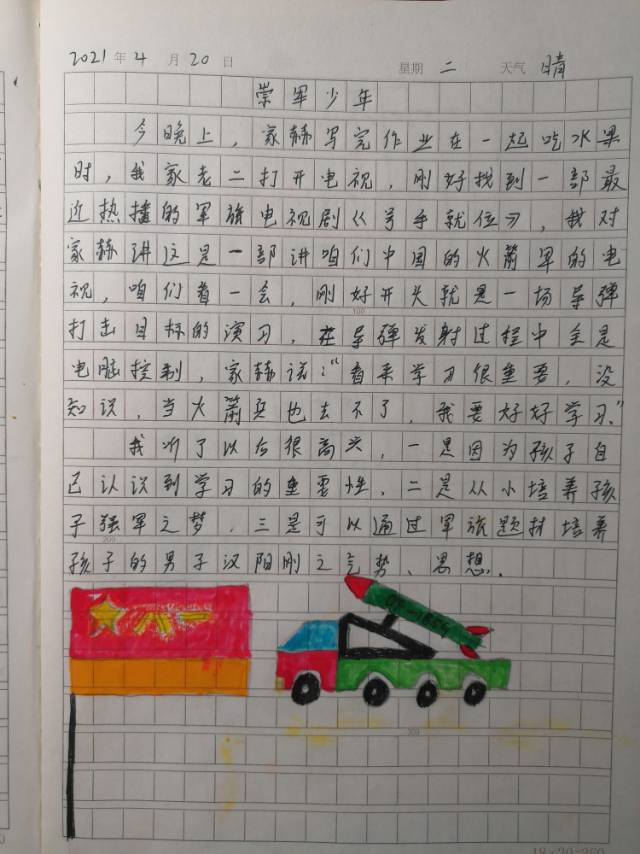 2021年4月20日 星期二 天气晴
崇军少年
今晚上，家赫写完作业在一起吃水果
时，我家老二打开电视，刚好找到一部最
近热播的军旅电视剧《号手就位》，我对
家赫讲这是一部讲咱们中国的火箭军的电
视，咱们看一会，刚好开头就是一场导弹
打击目标的演习，在导弹发射过程中全是
电脑控制，家赫说：“看来学习很重要，没
知识，当火箭兵也去不了，我要好好学习。”
我听了以后很高兴，一是因为孩子自
己认识到学习的重要性，二是从小培养孩
子强军之梦，三是可以通过军旅题材培养
孩子的男子汉阳刚之气势、思想。
100
200
300
八一
18×20=360